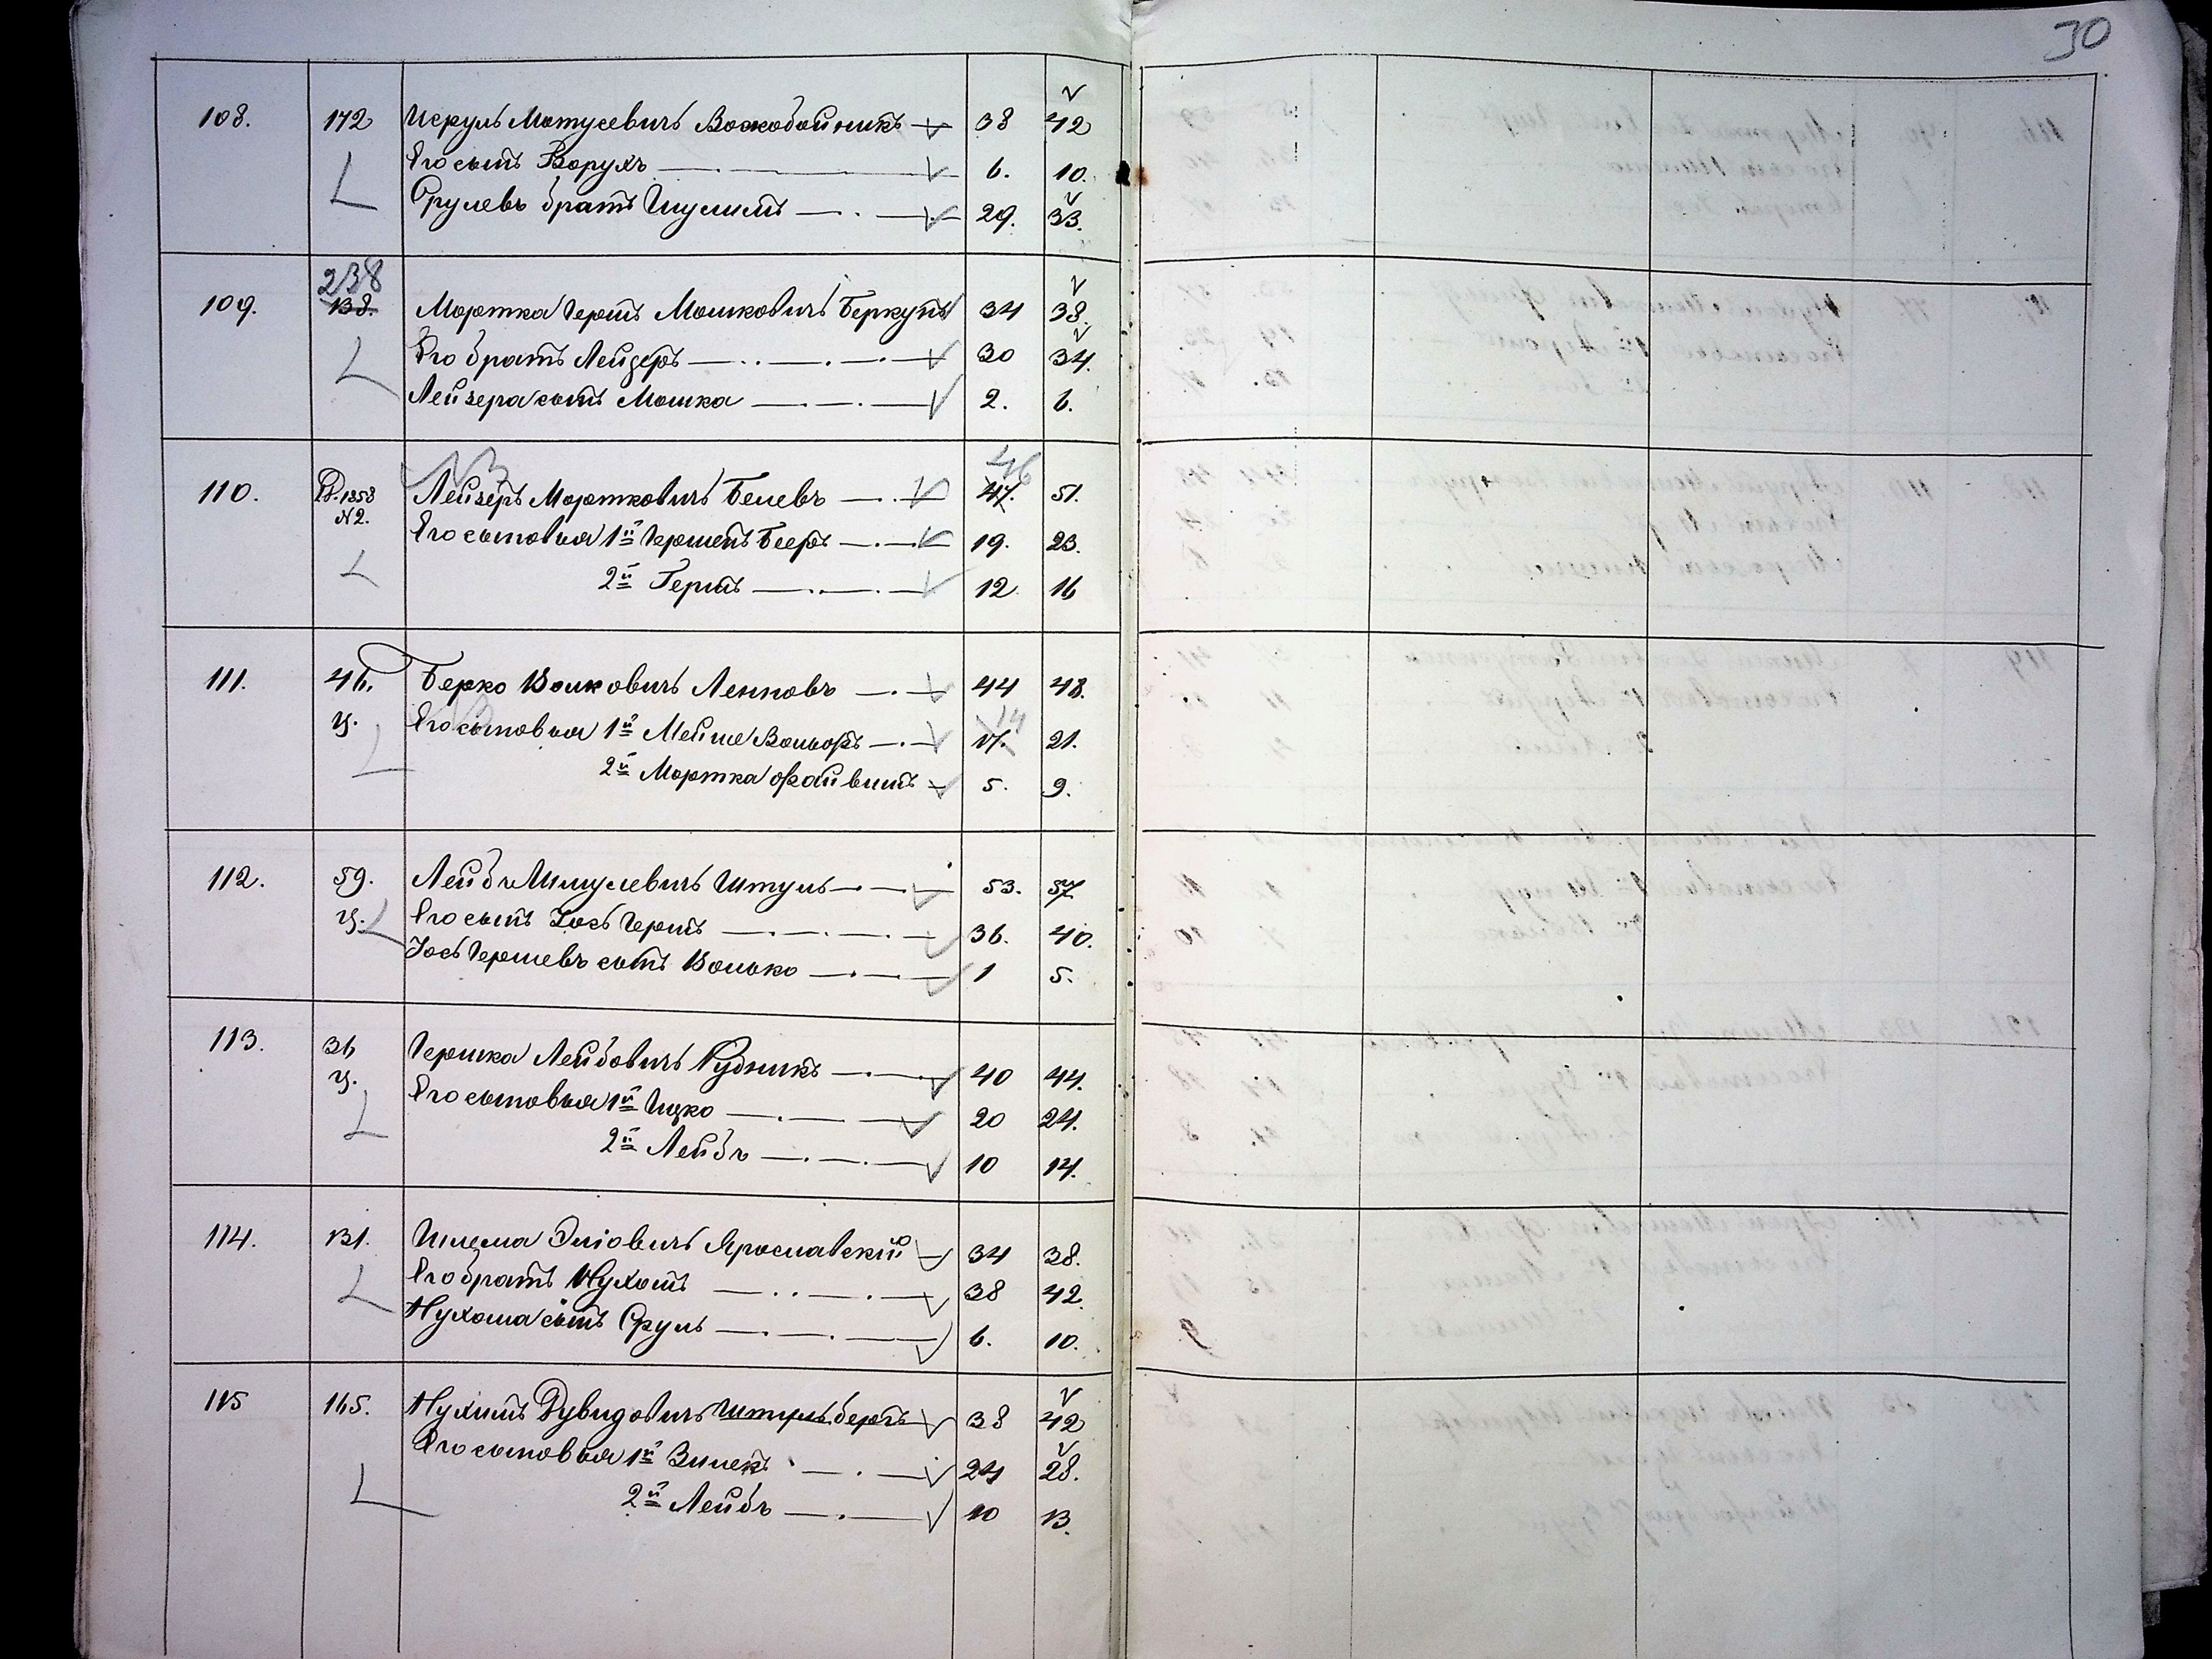 30
108. 172 Исруль Мотусевичъ Воскобойникъ 38 42
Его сынъ Борухъ 6. 10.
Срулевъ братъ Шулимъ 29. 33.
238
109. 138. Мортка Гершъ Мошковичъ Беркунъ 34 38.
Его братъ Лейзеръ 30 34.
Лейзера сынъ Мошка 2. 6.
46
110. Рв. 1858 Лейзеръ Мортковичъ Белевъ 47. 51.
N 2.
Его сыновья 1й Гершенъ Бееръ 19. 23.
2й Гершъ 12. 16
111. 46. Берко Волковичъ Лепновъ 44 48.
ц. Его сыновья 1й Мейше Вольфъ 17. 14 21.
2й Мортка Файвишъ 5. 9.
112. 59. Лейбъ Шмулевичъ Штуль 53. 57
ц. Его сынъ Іось Гершъ 36. 40.
Іось Гершевъ сынъ Волько 1 5.
113. 36 Гершка Лейбовичъ Рудникъ 40 44.
ц. Его сыновья 1й Ицко 20 24.
2й Лейбъ 10 14.
114. 131. Шлема Эліовичъ Ярославскій 34 38.
Его братъ Нухимъ 38 42.
Нухима сынъ Сруль 6. 10.
115 165. Нухимъ Дувидовичъ Штульбергъ 38 42
Его сыновья 1й Зилекъ 24 28.
2й Лейбъ 10 13.